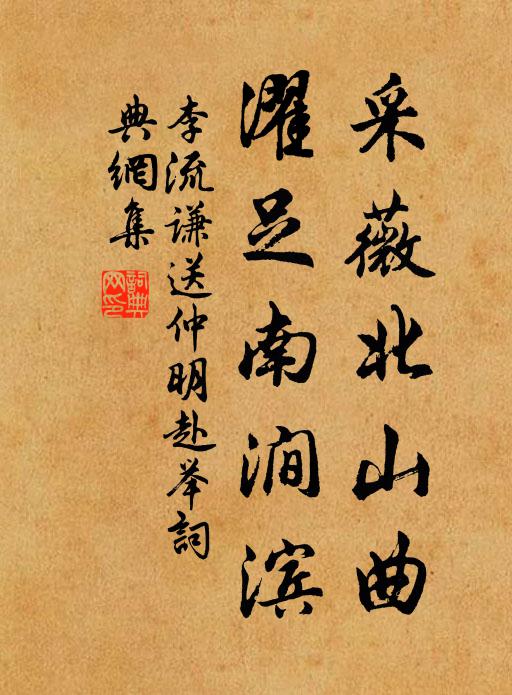 采薇北山曲
濯足南涧滨
李流谦送仲明赴举詞
典網集
詞典网印